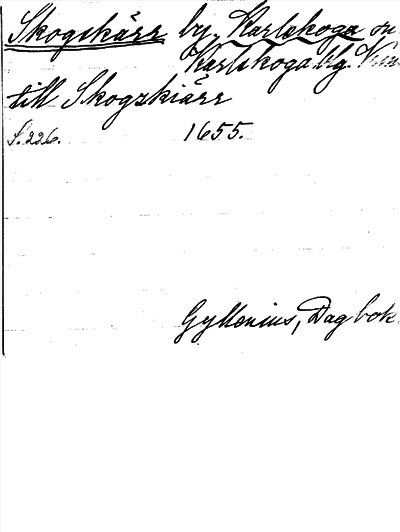 Skogskärr by, Karlskoga sn
Karlskoga blg.
till Skogzkiärr
S. 226. 1655.
Gyllenius, Dagbok